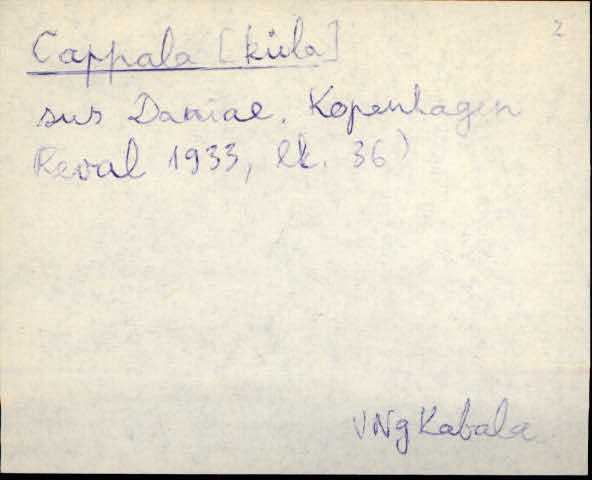 2
Cappala [küla]
sus Daniae. Kopenhagen
Reval 1933, lk. 36)
VNg Kabala